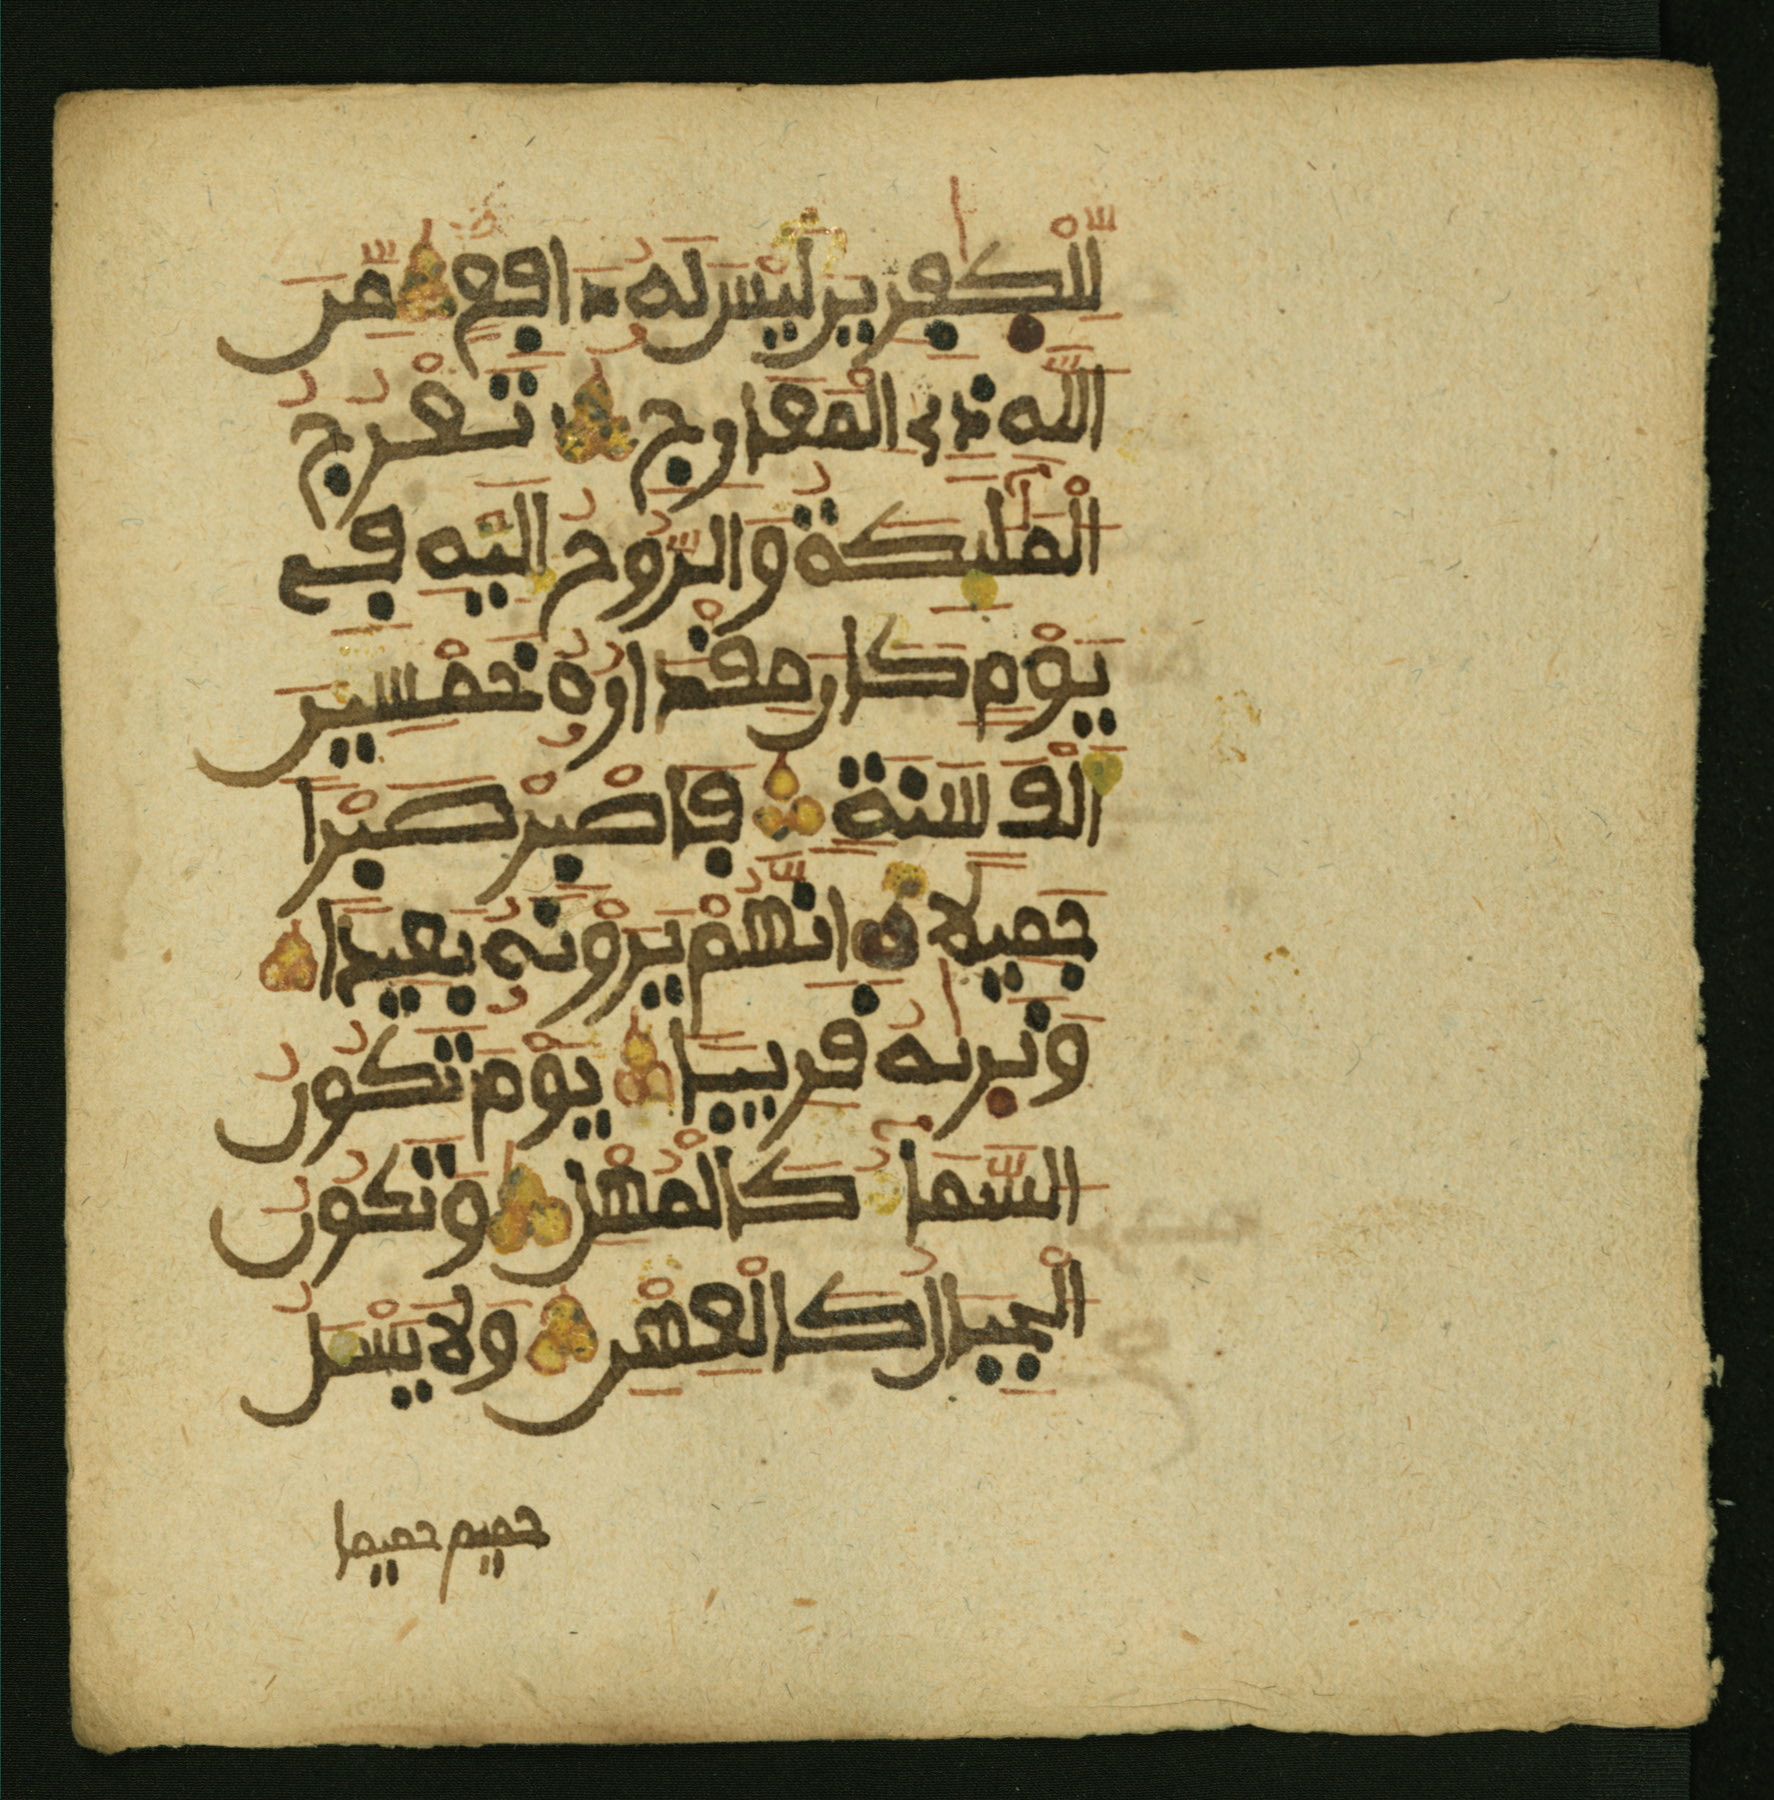 لِّلْكٰفِرِينَ لَيْسَ لَهُۥ دَافِعٌ مِّنَ
اللَّهِ ذِي الْمَعَارِجِ تَعْرُجُ
الْمَلَٰٓئِكَةُ وَالرُّوحُ إِلَيْهِ فِے
يَوْمٍ كَانَ مِقْدَارُهُۥ خَمْسِينَ
أَلْفَ سَنَةٍ فَاصْبِرْ صَبْرًا
جَمِيلًا إِنَّهُمْ يَرَوْنَهُۥ بَعِيدًا
وَنَرٰىٰهُ قَرِيبًا يَوْمَ تَكُونُ
السَّمَآءُ كَالْمُهْلِ وَتَكُونُ
الْجِبَالُ كَالْعِهْنِ وَلَا يَسْـَٔلُ
حميم حميما